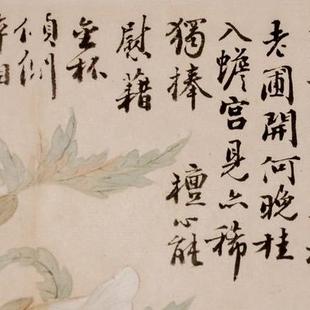 老圃開何晚桂
入蟾宮見亦稀
獨捧檀心能
慰藉
金杯
傾倒